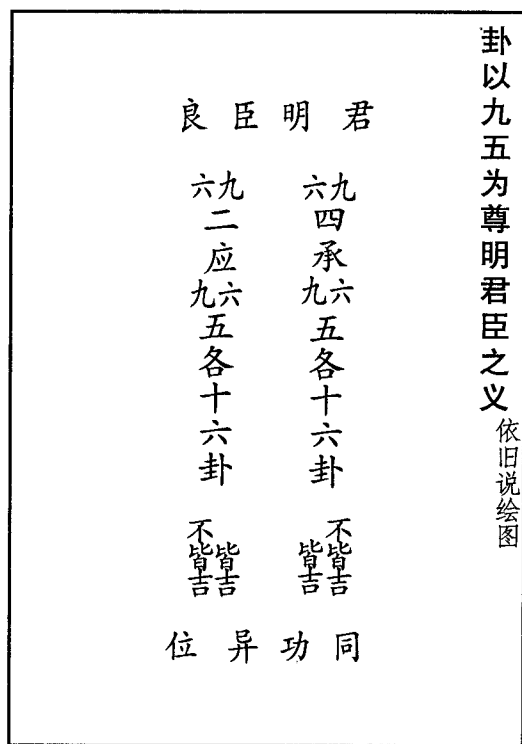 卦以九五为尊明君臣之义
依旧说绘图
君明臣良
九六四承六九五各十六卦不皆吉皆吉
九六二应六九五各十六卦皆吉不皆吉
同功异位